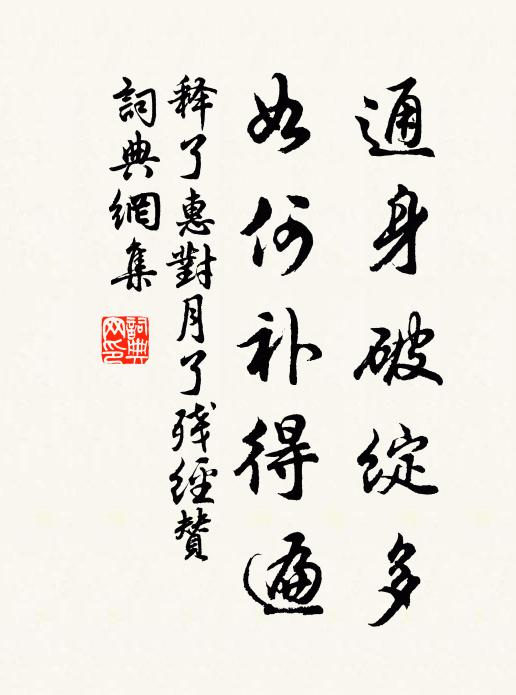 通身破綻多
如何补得遍
释了惠對月了残經贊
詞典網集
詞典网印